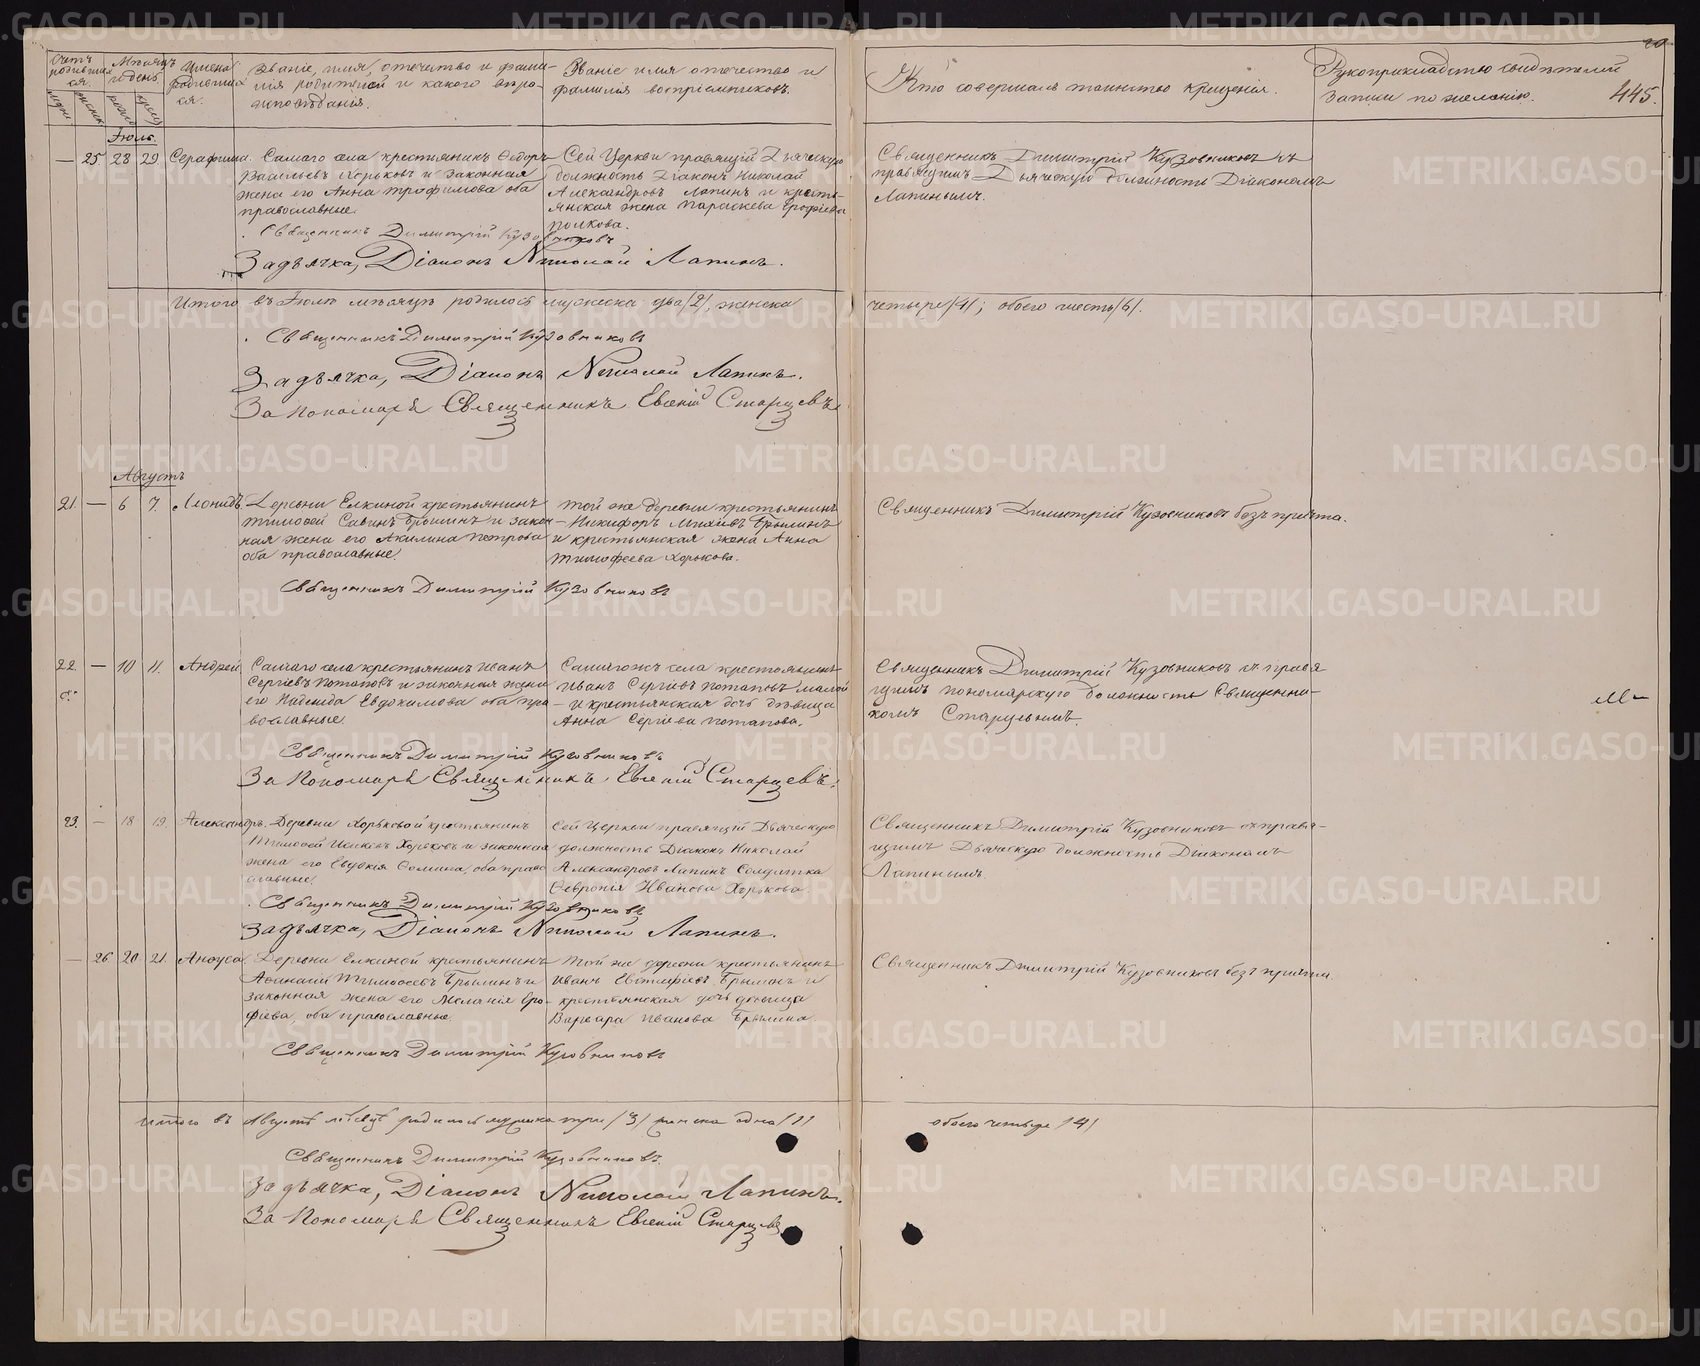 Счетъ родившихся.
Мѣсяцъ и день
Имена родившихся.
Званіе, имя, отечество и фами-
лія родителей и какого вѣро-
исповѣданія.
Званіе имя отечество и
фамилія воспріемниковъ.
Кто совершалъ таинство крещенія.
Рукоприкладство свидѣтелей
записи по желанію.
445.
Іюль.
— 25 28 29 Серафима.
Самаго села крестьянинъ Ѳедоръ
Васильевъ и законная
жена его Анна Трофимова оба
православные.
Сей Церкви правящій Дьяческую
должность Діаконъ Николай
Александровъ Лапинъ и кресть-
янская жена Параскева
Священникъ Димитрій Кузовниковъ съ
правящимъ Дьяческую должность Діакономъ
Лапинымъ.
Священникъ Димитрій Кузовниковъ
За дьячка, Діаконъ Николай Лапинъ.
Итого въ Іюлѣ мѣсяцѣ родилось мужеска два /2/, женска четыре /4/; обоего шесть /6/.
Священникъ Димитрій Кузовниковъ
За дьячка, Діаконъ Николай Лапинъ.
За Пономаря Священникъ Евгеній Старцевъ
Августъ
21. — 6 7. Леонидъ.
Деревни Елкиной крестьянинъ
Тимоѳей Савинъ Брылинъ и закон-
ная жена его Акилина Петрова
оба православные.
Той же деревни крестьянинъ
Никифоръ Брылинъ
и крестьянская жена Анна
Тимофеева Хорькова.
Священникъ Димитрій Кузовниковъ безъ причта.
Священникъ Димитрій Кузовниковъ
22. — 10 11. Андрей
Самаго села крестьянинъ Иванъ
Сергіевъ Потаповъ и законная жена
его Надежда Евдокимова оба пра
вославные.
Самаго жъ села крестьянинъ
Иванъ Сергіевъ Потаповъ малой
и крестьянская дочь дѣвица
Анна Сергіева Потапова.
Священникъ Димитрій Кузовниковъ съ правя
щимъ пономарскую должность Священни-
комъ Старцевымъ.
Священникъ Димитрій Кузовниковъ
За Пономаря Священникъ Евгеній Старцевъ.
23. — 18 19. Александръ.
Деревни Хорьковой крестьянинъ
Тимоѳей Хорьковъ и законная
жена его Евдокія Ѳомина, оба право
славные.
Сей Церкви правящій Дьяческую
должность Діаконъ Николай
Александровъ Лапинъ Солдатка
Ѳевронія Иванова Хорькова.
Священникъ Димитрій Кузовниковъ съ правя-
щимъ Дьяческую должность Діакономъ
Лапинымъ.
Священникъ Димитрій Кузовниковъ
За дьячка, Діаконъ Николай Лапинъ.
— 26 20 21. Анѳуса
Деревни Елкиной крестьянинъ
Аѳанасій Тимоѳеевъ Брылинъ и
законная жена его Меланія Еро-
фіева, оба православные.
Той же деревни крестьянинъ
Иванъ Брылинъ и
крестьянская дочь дѣвица
Варвара Иванова Брылина.
Священникъ Димитрій Кузовниковъ безъ причта.
Священникъ Димитрій Кузовниковъ
Итого въ Августѣ мѣсяцѣ родилось мужеска три /3/ женска одна /1/ обоего четыре /4/
Священникъ Димитрій Кузовниковъ.
За дьячка, Діаконъ Николай Лапинъ.
За Пономаря Священникъ Евгеній Старцевъ
METRIKI.GASO-URAL.RU